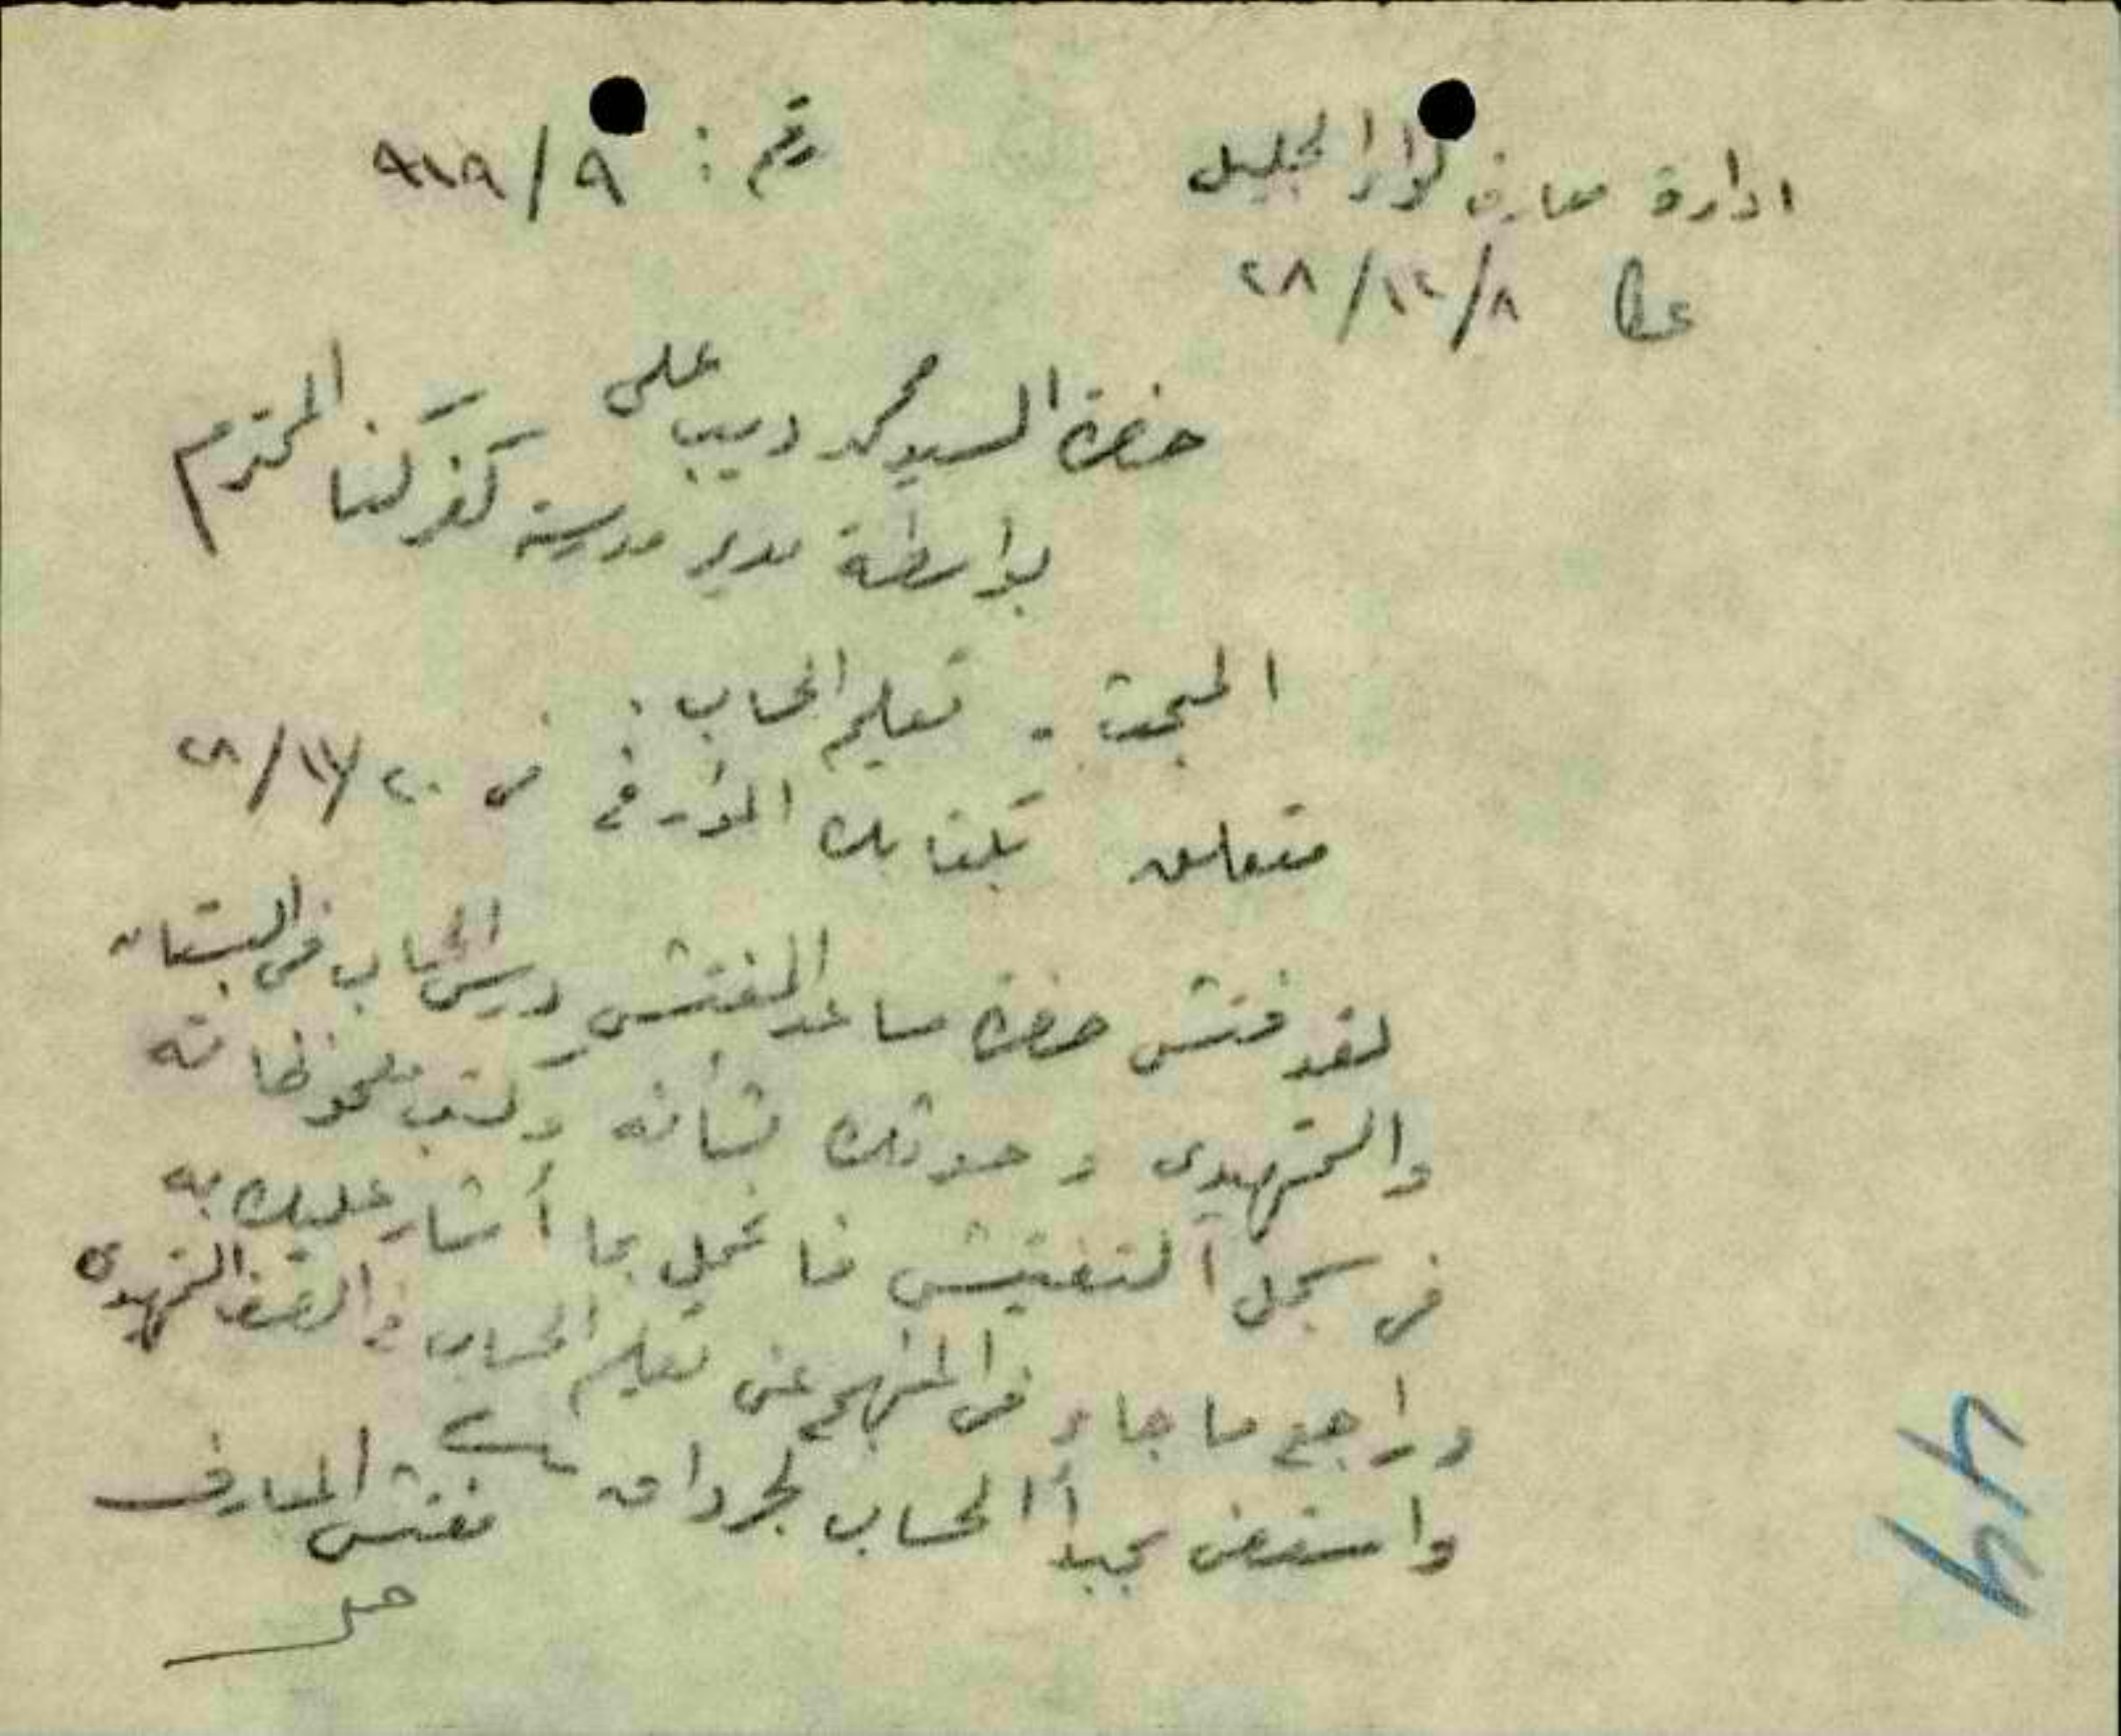 ادارة معارف لواء الجليل
رقم : ٩ / ٩١٩
عكا ٨/١٢/٢٨
حضرة السيد محمد ديب علي
بواسطة مدير مدرسة كفر كنا المحترم
المبحث - تعليم الحساب .
متعلق بكتابك المؤرخ في ٢٠/١١/٢٨
لقد فتش حضرة مساعد المفتش درس الحساب في البستان
والتمهيدي وحدثك بشأنه وكتب ملحوظاته
في سجل التفتيش فاعمل بما أشار عليك به
وراجع ما جاء في المنهج عن تعليم الحساب في الصف التمهيدي
واستعن بمبدأ الحساب لجرداق
مفتش المعارف
44